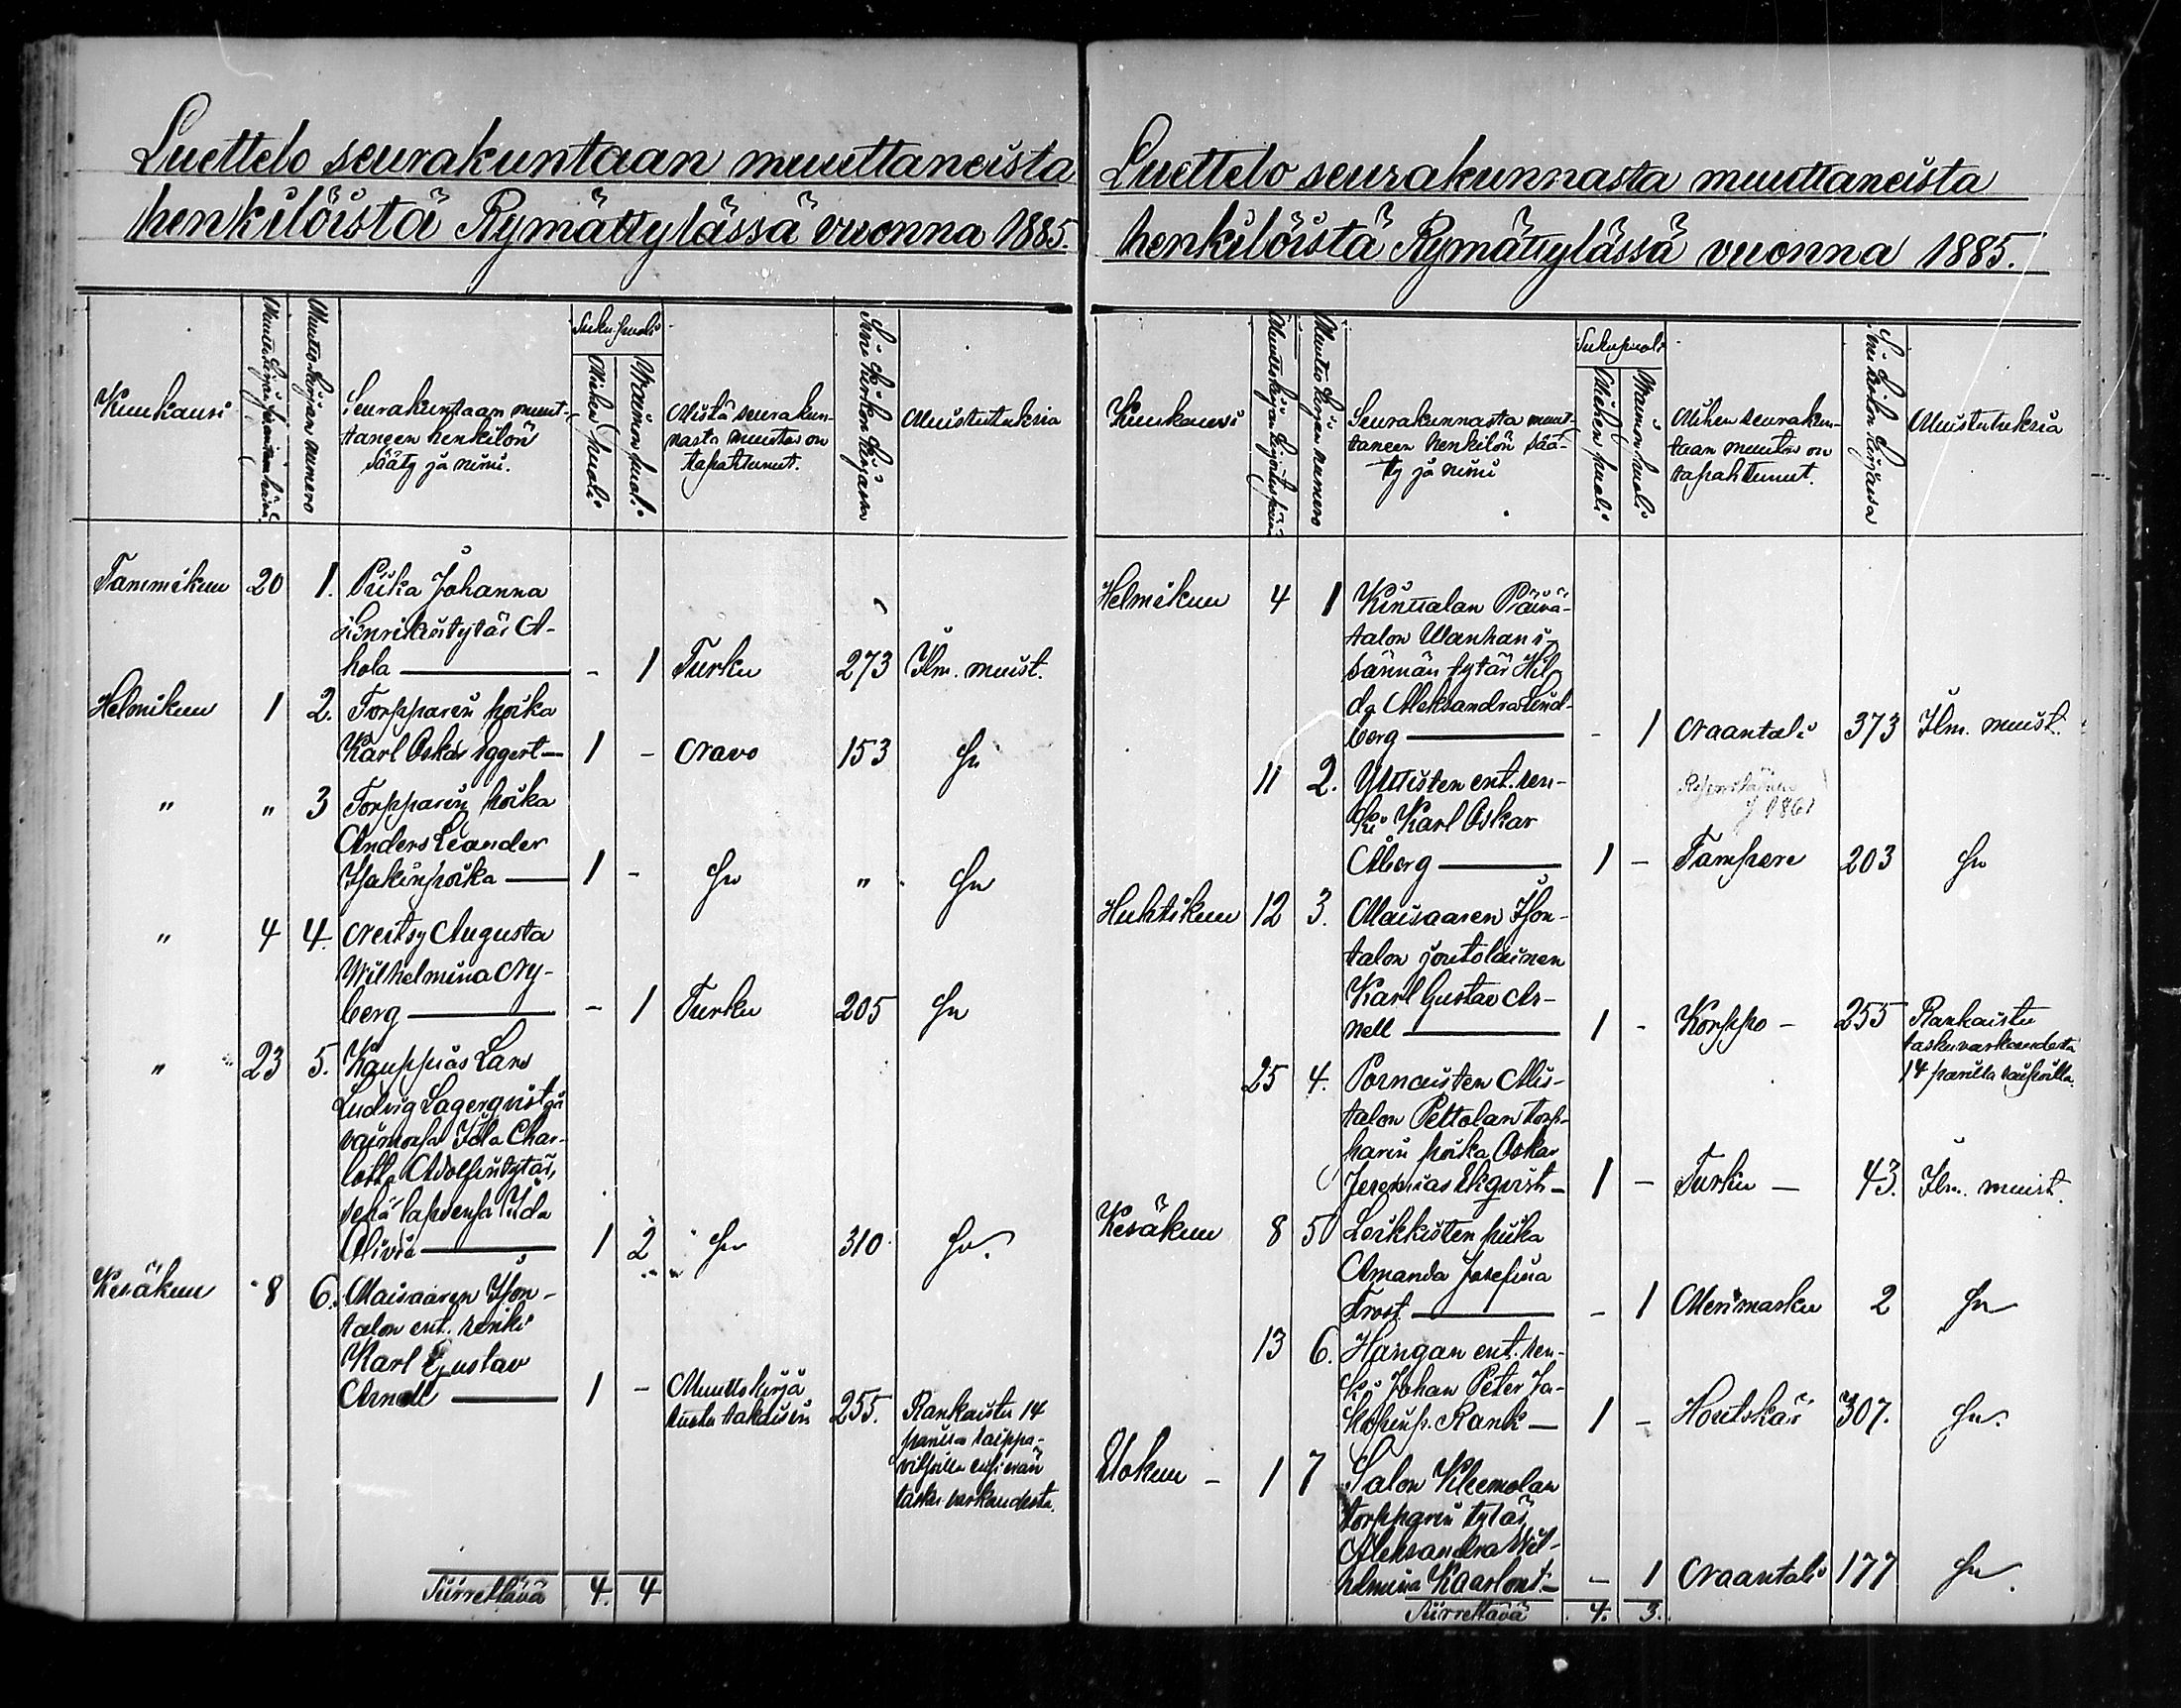 Luettelo seurakuntaan muuttaneista
henkilöistä Rymättylässä vuonna 1885.
Kuukausi
Muuttokirjan numero
Seurakuntaan muut-
taneen henkilön
sääty ja nimi.
Sukupuoli
Miehenpuoli
Waimonpuoli
Mistä seurakun-
nasta muutto on
tapahtunut.
Sivu kirkonkirjassa
Muistutuksia
Tammikuu 20 1. Piika Johanna
Henrikintytär A-
hola — - 1 Turku 273 Ilm. muist.
Helmikuu 1 2. Torpparin poika
Karl Oskar Eggert — 1 - Navo 153 Sn
" " 3 Torpparin poika
Anders Leander
Isakinpoika — 1 - Sn " Sn
" 4 4. Neitsy Augusta
Wilhelmina Ny-
berg — - 1 Turku 205 Sn
" 23 5. Kauppias Lars
Ludvig Lagerqvist ja
vaimonsa Ida Char-
lotta Adolfintytär,
sekä lapsensa Ida
Olivia — 1 2 Sn 310 Sn.
Kesäkuu 8 6. Maisaaren Ison-
talon ent. renki
Karl Gustav
Arnell — 1 - Muuttokirja
tuotu takaisin 255. Rankaistu 14
parilla raippa-
vitsoilla ensi erän
taskuvarkaudesta.
Siirrettävä 4. 4
Luettelo seurakunnasta muuttaneista
henkilöistä Rymättylässä vuonna 1885.
Kuukausi
Muuttokirjan numero
Seurakunnasta muut-
taneen henkilön sää-
ty ja nimi
Sukupuoli
Miehenpuoli
Waimonpuoli
Mihen seurakun-
taan muutto on
tapahtunut.
Sivu kirkonkirjassa
Muistutuksia
Helmikuu 4 1 Kintalan Päivä-
talon Wanhan i-
sännän tytär Hil-
da Aleksandra Lind-
berg — - 1 Naantali 373 Ilm. muist.
11 2. Ylttisten ent. ren-
ki Karl Oskar
Åberg — 1 - Tampere 203 Sn
1861
Huhtikuu 12 3. Maisaaren Ison-
talon joutolainen
Karl Gustav Ar-
nell — 1 - Korppo - 255 Rankaistu
taskuvarkaudesta
14 parilla raipoilla.
25 4. Pornaisten Alis-
talon Pettolan torp-
parin poika Oskar
Jeremias Ekqvist — 1 - Turku — 43. Ilm. muist.
Kesäkuu 8 5 Leikkisten piika
Amanda Josefina
Frost. — - 1 Merimasku 2 Sn
13 6. Hangan ent. ren-
ki Johan Peter Ja-
kopinp. Rank — 1 - Houtskär 307. Sn.
Elokuu - 1 7 Salon Kleemolan
torpparin tytär
Aleksandra Wil-
helmina Kaarlont — - 1 Naantali 177 Sn.
Siirrettävä 4. 3.